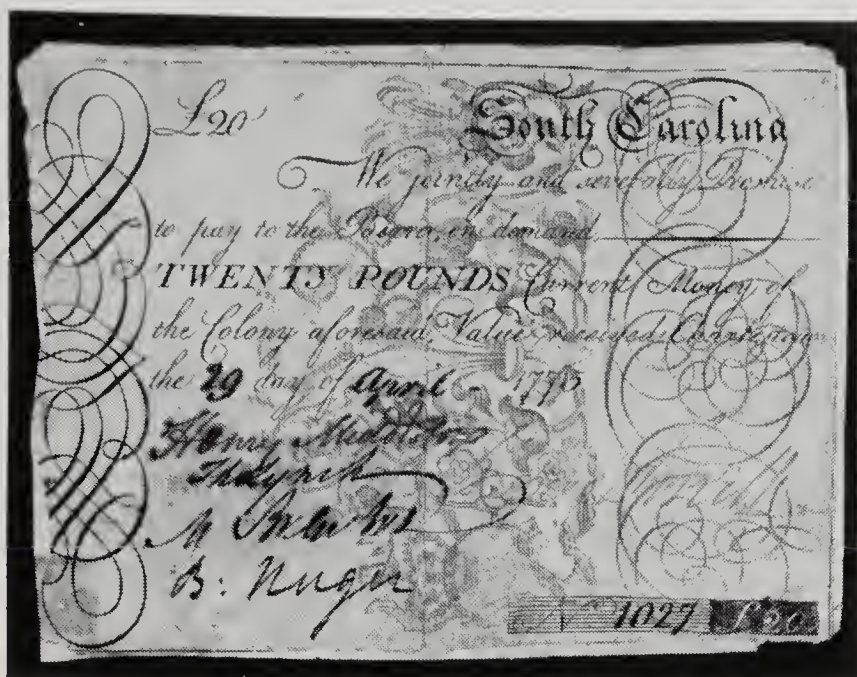 £20 South Carolina
We jointly and severally Promise
to pay to the Bearer, on demand,
TWENTY POUNDS Current Money of
the Colony aforesaid, Value received
the 29 day of April 1775
Henry Middleton
Th Lynch
M Brewton
B: Huger
N 1027 £20